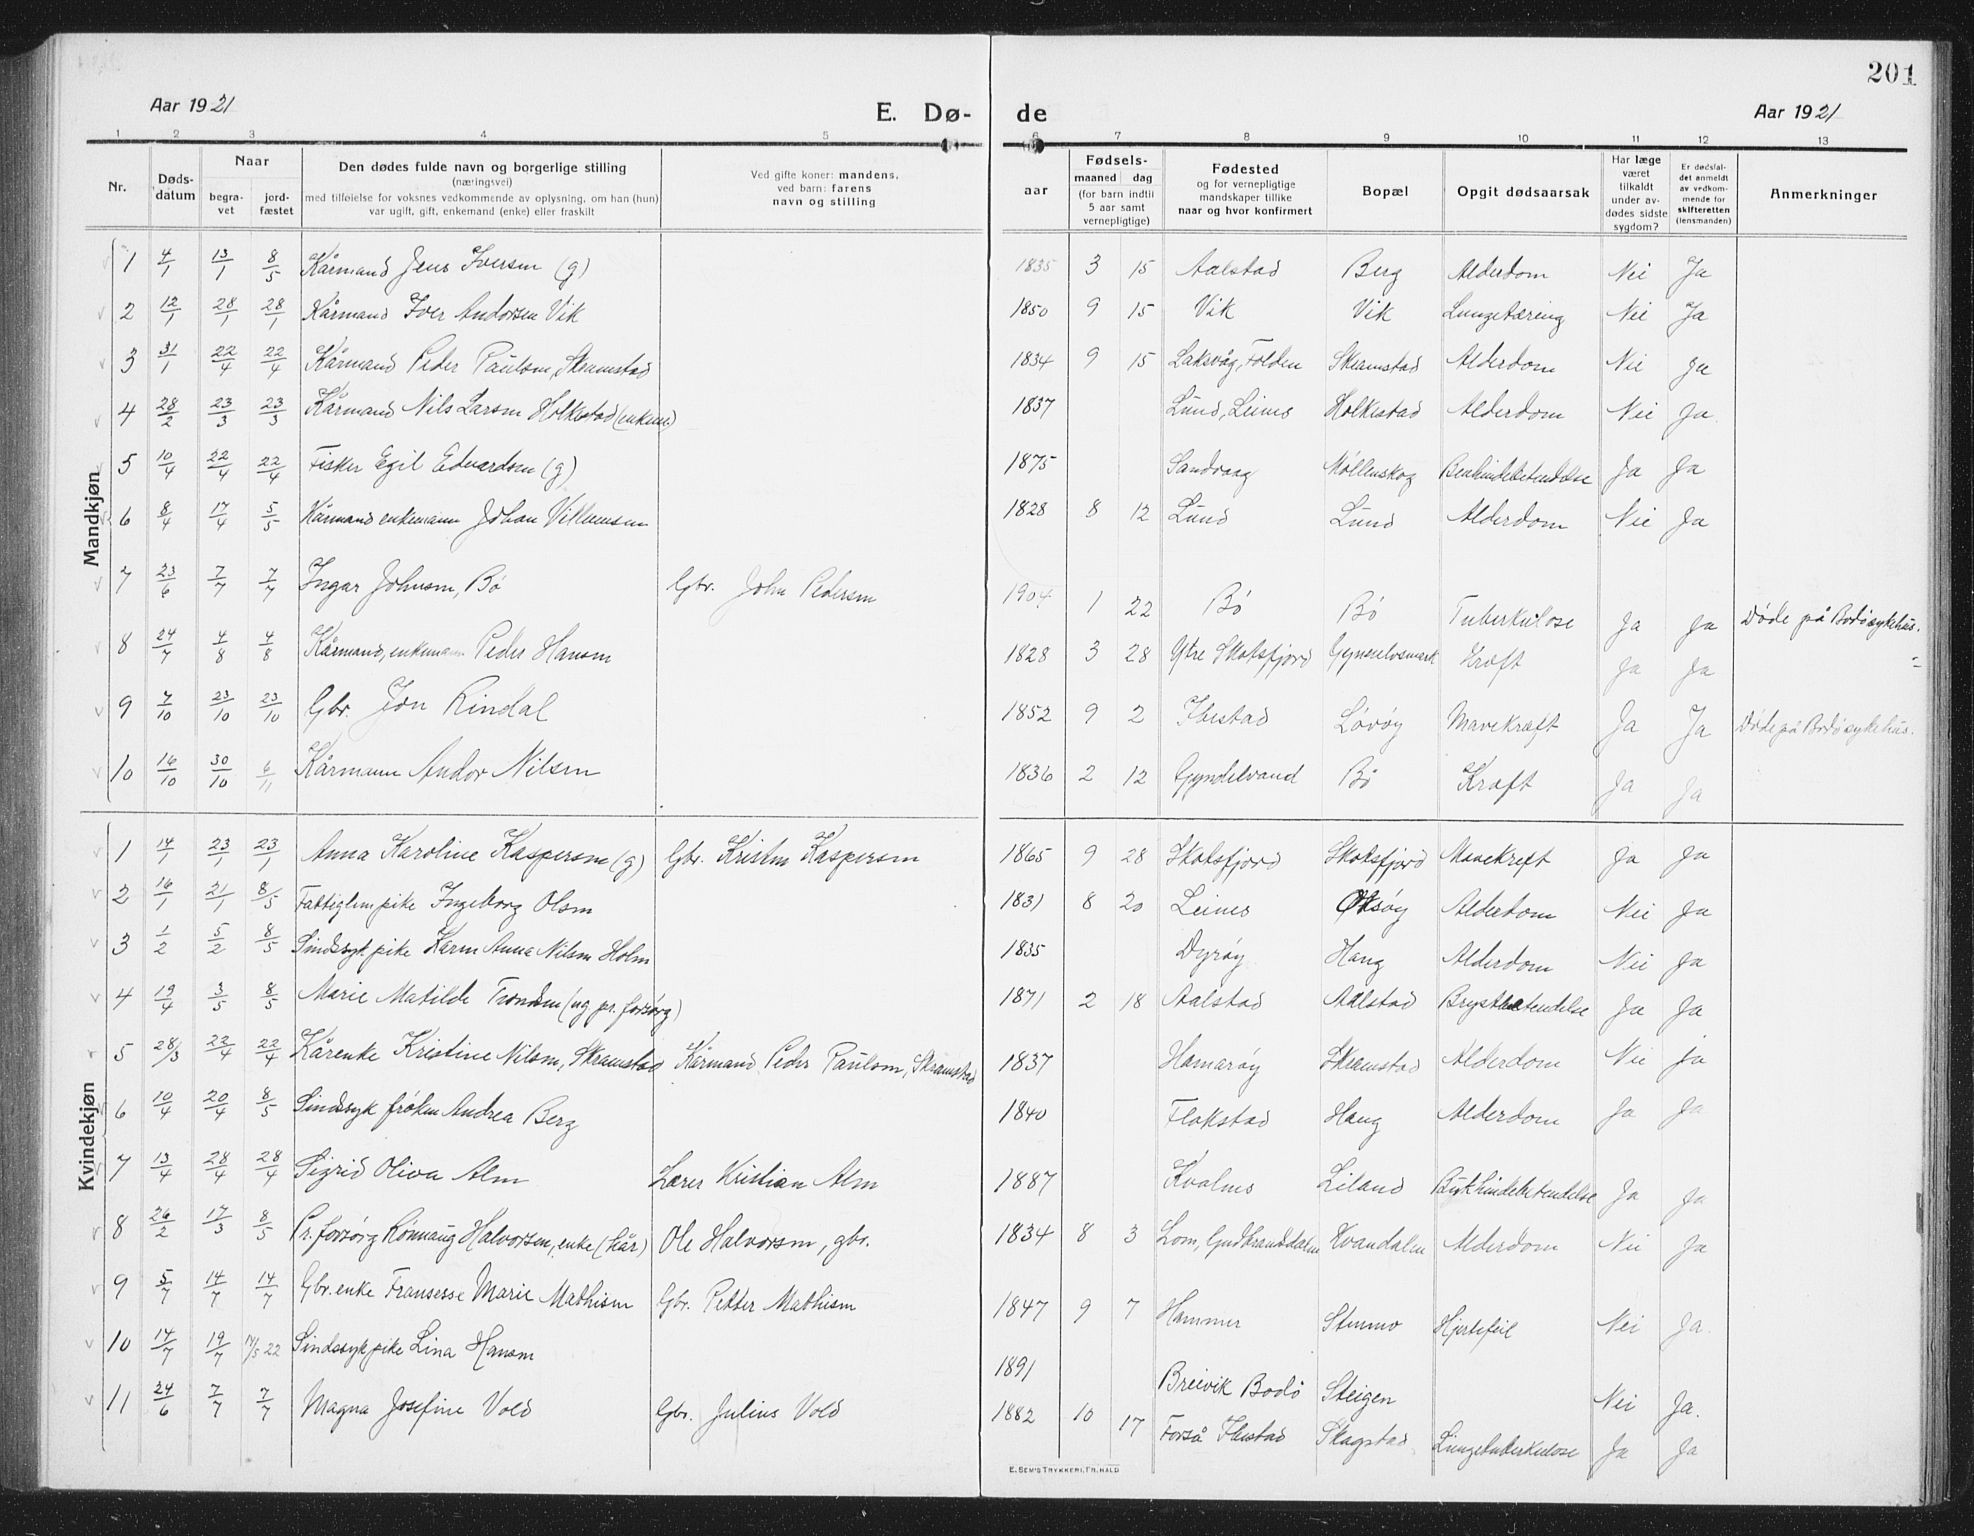 201
Aar 1921 E. Dø- de Aar 1921
1 2 3 4 5 6 7 8 9 10 11 12 13
Nr. Dødsdatum Naar begravet jordfæstet Den dødes fulde navn og borgerlige stilling (næringsvei) med tilføielse for voksnes vedkommende av oplysning, om han (hun) var ugift, gift, enkemand (enke) eller fraskilt Ved gifte koner: mandens, ved barn: farens navn og stilling Fødsels- aar maaned dag (for barn indtil 5 aar samt vernepligtige) Fødested og for vernepligtige mandskaper tillike naar og hvor konfirmert Bopæl Opgit dødsaarsak Har læge været tilkaldt under avdødes sidste sygdom? Er dødsfaldet anmeldt av vedkommende for skifteretten (lensmanden) Anmerkninger
Mandkjøn
1 4/1 13/1 8/5 Kårmand Jens Iversen (g) 1835 3 15 Aalstad Berg Alderdom Nei Ja
2 12/1 28/1 28/1 Kårmand Iver Andorsen Vik 1850 9 15 Vik Vik Lungetæring Nei Ja
3 31/1 22/4 22/4 Kårmand Peder Paulsen, Skramstad 1834 9 15 Laksvåg, Folden Skramstad Alderdom Nei Ja
4 28/2 23/3 23/3 Kårmand Nils Larsen Holkestad (enkem) 1837 Lund, Leines Holkestad Alderdom Nei Ja.
5 10/4 22/4 22/4 Fisker Egil Edvardsen (g) 1875 Sandvaag Møllenskog Benhindebetendelse Ja Ja
6 8/4 17/4 5/5 Kårmand enkemann Johan Villumsen 1828 8 12 Lund Lund Alderdom Nei Ja
7 23/6 7/7 7/7 Ingar Johnsen, Bø Gbr. John Pedersen 1904 1 22 Bø Bø Tuberkulose Ja Ja Døde på Bodø sykehus.
8 24/7 4/8 4/8 Kårmand, enkemann Peder Hansen 1828 3 28 Ytre Skotsfjord Gyndelvsmark Kræft Ja Ja
9 7/10 23/10 23/10 Gbr. Jon Rindal 1852 9 2 Ibestad Løvøy Mavekræft Ja Ja Døde på Bodø sykehus.
10 16/10 30/10 6/11 Kårmann Andor Nilsen 1836 2 12 Gyndelvand Bø Kræft Ja Ja
Kvindekjøn
1 14/1 23/1 23/1 Anna Karoline Kaspersen (g) Gbr. Kristen Kaspersen 1865 9 28 Skotsfjord Skotsfjord Mavekreft Ja Ja
2 16/1 21/1 8/5 Fattiglem pike Ingeborg Olsen 1831 8 20 Leines Oksøy Alderdom Nei Ja
3 1/2 5/2 8/5 Sindssyk pike Karen Anna Nilsen Holm 1835 Dyrøy Haug Alderdom Nei Ja
4 19/4 3/5 8/5 Marie Matilde Trondsen (ug pr. forsørg) 1871 2 18 Aalstad Aalstad Brystbetendelse Ja Ja
5 28/3 22/4 22/4 Kårenke Kristine Nilsen, Skramstad Kårmand Peder Paulsen, Skramstad 1837 Hamarøy Skramstad Alderdom Nei Ja
6 10/4 20/4 8/5 Sindssyk frøken Andrea Berg 1840 Flakstad Haug Alderdom Ja Ja
7 13/4 28/4 28/4 Sigrid Oliva Alm Lærer Kristian Alm 1887 Kvalnes Leiland Bukhindebetendelse Ja Ja
8 26/2 17/3 8/5 Pr. forsørg Rønnaug Halvorsen, enke (kår) Ole Halvorsen, gbr. 1834 8 3 Lom, Gudbrandsdalen Kvandalen Alderdom Nei Ja
9 5/7 14/7 14/7 Gbr. enke Fransesse Marie Mathisen Gbr. Petter Mathisen 1847 9 7 Hammer Stenmo Hjertefeil Nei Ja.
10 14/7 19/7 14/5 22 Sindssyk pike Lina Hansen 1891 Breivik Bodø Steigen Nei Ja.
11 24/6 7/7 7/7 Magna Josefine Vold Gbr. Julius Vold 1882 10 17 Forså Ibestad Skagstad Lungetuberkulose Ja Ja
E. SEM'S TRYKKERI, FR.HALD